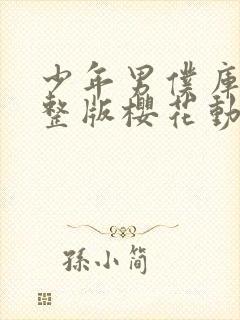 少年男僕庫
整版櫻花動
孫小简